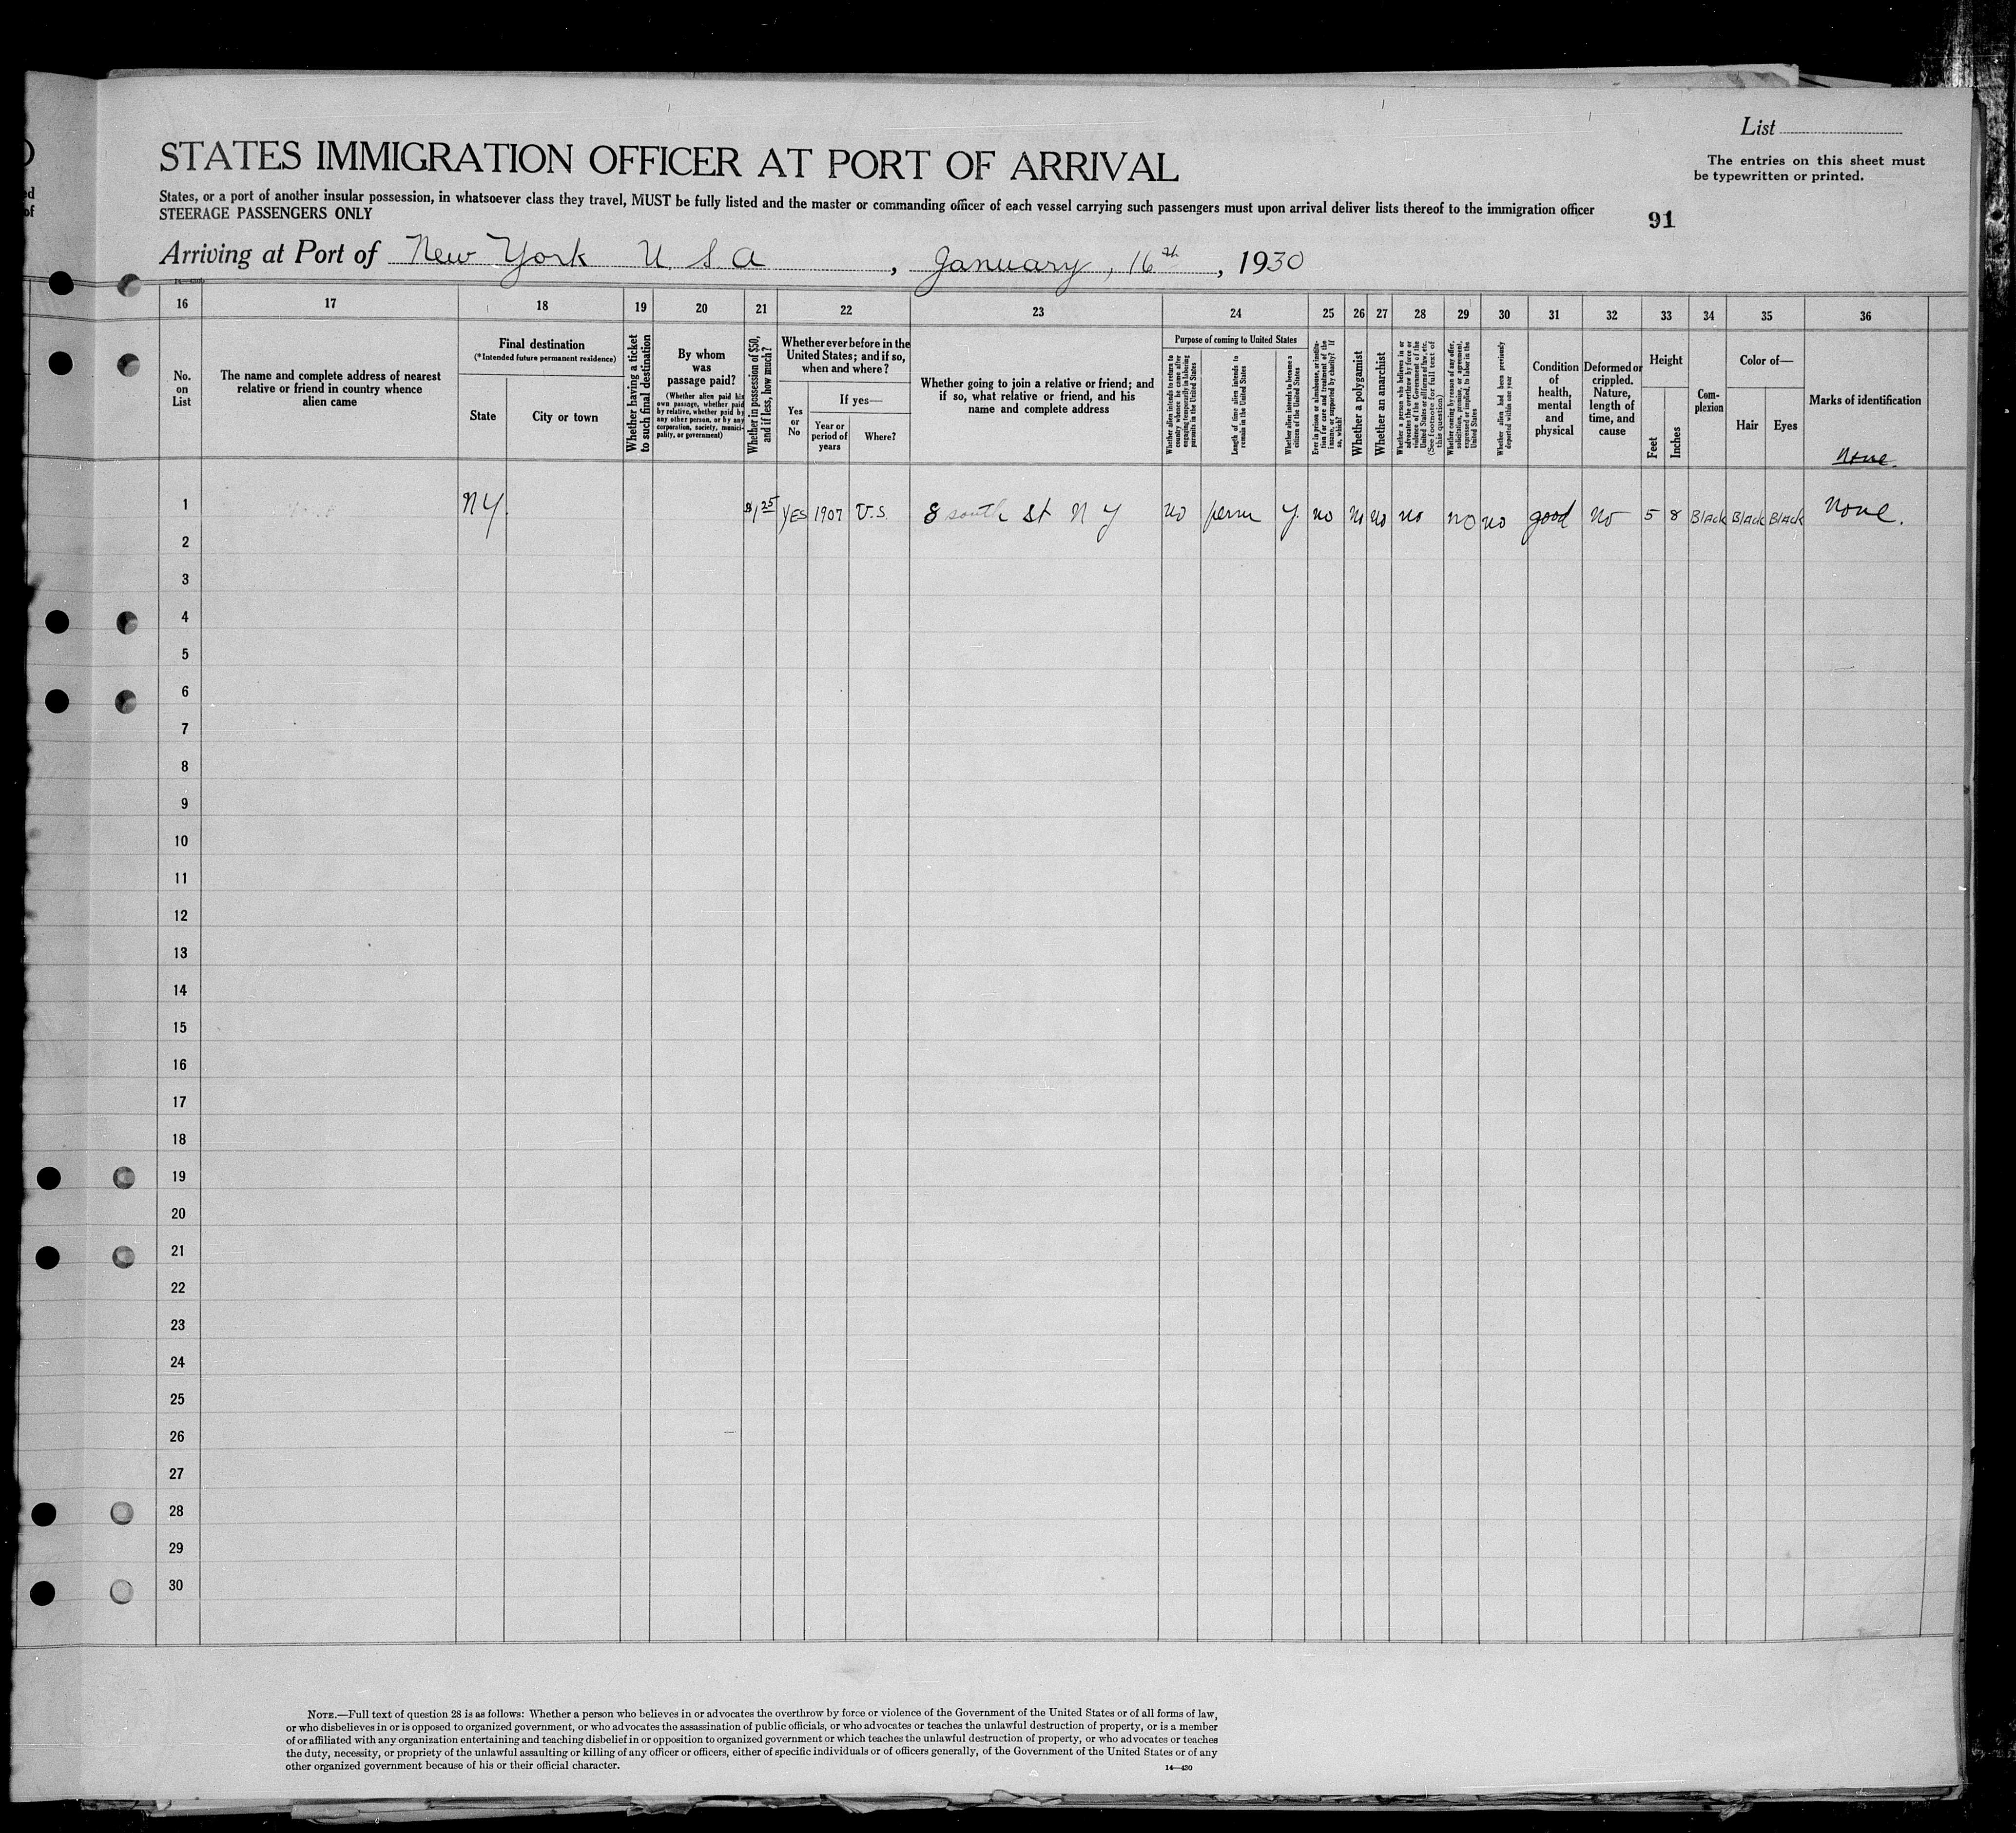 List
The entries on this sheet must
be typewritten or printed.
STATES IMMIGRATION OFFICER AT PORT OF ARRIVAL
States, or a port of another insular possession, in whatsoever class they travel, MUST be fully listed and the master or commanding officer of each vessel carrying such passengers must upon arrival deliver lists thereof to the immigration officer
STEERAGE PASSENGERS ONLY
91
Arriving at Port of New York U S A, January, 16th, 1930
16 17 18 19 20 21 22 23 24 25 26 27 28 29 30 31 32 33 34 35 36
No.
on
List
The name and complete address of nearest
relative or friend in country whence
alien came
Final destination
(*Intended future permanent residence)
State
City or town
Whether having a ticket
to such final destination
By whom
was
passage paid?
(Whether alien paid his
own passage, whether paid
by relative, whether paid by
any other person, or by any
corporation, society, munici-
pality, or government)
Whether in possession of $50,
and if less, how much?
Whether ever before in the
United States; and if so,
when and where?
Yes
or
No
If yes—
Year or
period of
years
Where?
Whether going to join a relative or friend; and
if so, what relative or friend, and his
name and complete address
Purpose of coming to United States
Whether alien intends to return to
country whence he came after
engaging temporarily in laboring
pursuits in the United States
Length of time alien intends to
remain in the United States
Whether alien intends to become a
citizen of the United States
Ever in prison or almshouse, or institu-
tion for care and treatment of the
insane, or supported by charity? If
so, which?
Whether a polygamist
Whether an anarchist
Whether a person who believes in or
advocates the overthrow by force or
violence of the Government of the
United States or all forms of law, etc.
(See footnote for full text of
this question)
Whether coming by reason of any offer,
solicitation, promise, or agreement,
expressed or implied, to labor in the
United States
Whether alien had been previously
deported within one year
Condition
of
health,
mental
and
physical
Deformed or
crippled.
Nature,
length of
time, and
cause
Height
Feet
Inches
Com-
plexion
Color of—
Hair
Eyes
Marks of identification
None.
1 NY. $1 25 YES 1907 U.S. 8 south St N Y no perm Y. no No No no no no good No 5 8 Black Black Black None.
2
3
4
5
6
7
8
9
10
11
12
13
14
15
16
17
18
19
20
21
22
23
24
25
26
27
28
29
30
NOTE.—Full text of question 28 is as follows: Whether a person who believes in or advocates the overthrow by force or violence of the Government of the United States or of all forms of law,
or who disbelieves in or is opposed to organized government, or who advocates the assassination of public officials, or who advocates or teaches the unlawful destruction of property, or is a member
of or affiliated with any organization entertaining and teaching disbelief in or opposition to organized government or which teaches the unlawful destruction of property, or who advocates or teaches
the duty, necessity, or propriety of the unlawful assaulting or killing of any officer or officers, either of specific individuals or of officers generally, of the Government of the United States or of any
other organized government because of his or their official character.
14—430